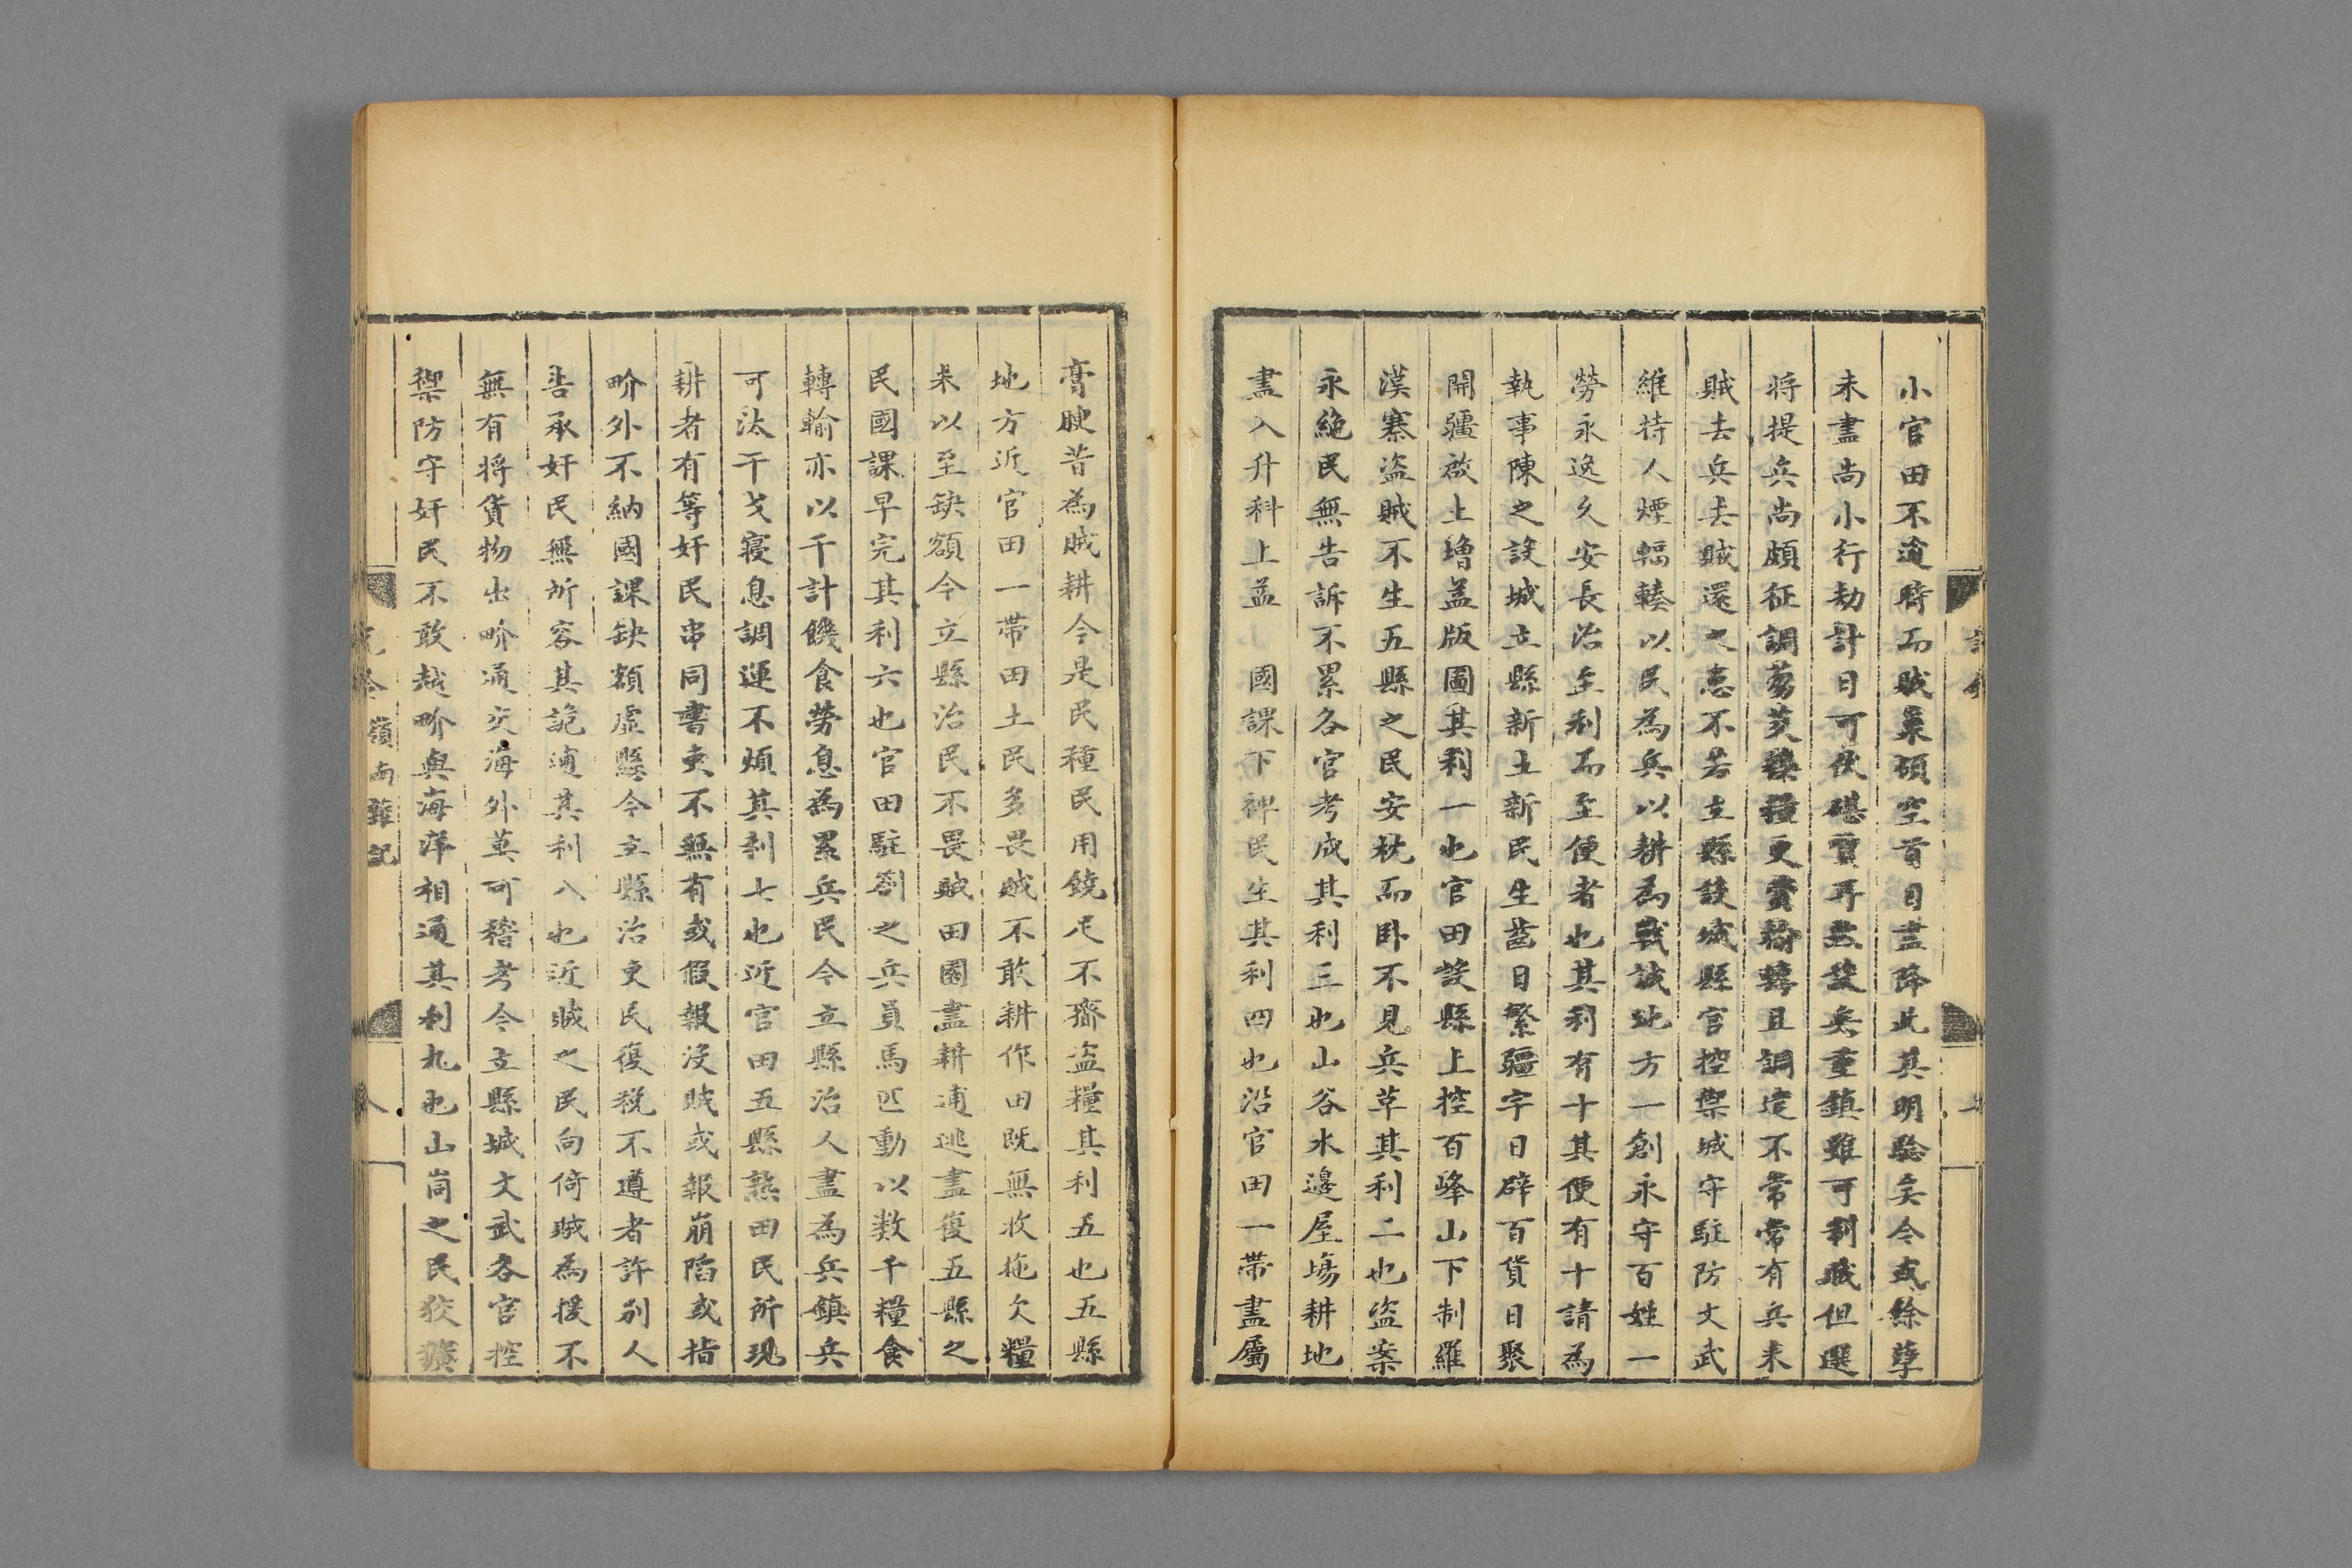 小官田不逾時而賊巢頓空首目盡降此其明驗矣今或餘孽
未盡尚小行劫計日可伏堪賀再無設兵重鎮雖可制賊但選
將提兵尚頗征調芻茭糗糧更費輸轉且調遣不常常有兵來
賊去兵去賊還之患不若立縣設城縣官控禦城守駐防文武
維持人煙輻輳以民為兵以耕為戰誠地方一創永守百姓一
勞永逸久安長治至利而至便者也其利有十其便有十請為
執事陳之設城立縣新土新民生齒日繁疆宇日辟百貨日聚
開疆啟土增益版圖其利一也官田設縣上控百峰山下制羅
漢寨盜賊不生五縣之民安枕而卧不見兵革其利二也盜案
永絶民無告訴不累各官考成其利三也山谷水邊屋塲耕地
盡入升科上益 國課下裨民生其利四也沿官田一帶盡屬
膏腴昔為賊耕今是民種民用饒足不齎盜糧其利五也五縣
地方近官田一帶田土民多畏賊不敢耕作田既無收拖欠糧
米以至缺額今立縣治民不畏賊田園盡耕逋逃盡復五縣之
民國課早完其利六也官田駐劄之兵員馬匹動以数千糧食
轉輸亦以千計饑食勞息為累兵民今立縣治人盡為兵鎮兵
可汰干戈寢息調運不煩其利七也近官田五縣熟田民所現
耕者有等奸民串同書吏不無有或假報没賊或報崩陷或指
畍外不納國課缺額虛懸今立縣治吏民復税不遵者許別人
告承奸民無所容其詭逋其利八也近賊之民向倚賊為援不
無有將貨物出畍通交海外莫可稽考今立縣城文武各官控
禦防守奸民不敢越畍與海洋相通其利九也山峝之民狡獷
嶺南雜記
八